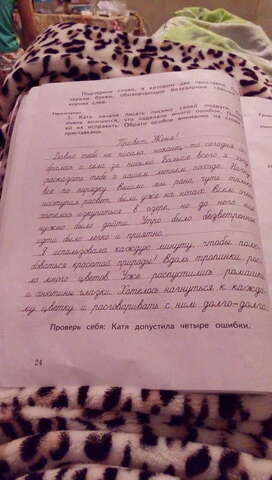 Подчеркни слово, в котором две приставки. По
черкни буквы, обозначающие безударные
корнях слов.
1. Катя начала писать письмо своей подруге
очень волнуется, что наделала много ошибок.
ей их исправить. Обрати особое внимание на слова
приставками.
Привет, Женя!
Давно тебе не писала,
фраза и села за письмо. Больше всего я хочу
рассказать тебе о нашем летнем походе. Начну
все по порядку. Вышли мы рано, путь
наступил расвет, были уже на ногах. Всем очень
хотелось изкупаться в озере, но до него
нужно было дойти. Утро было безветренное,
идти было легко и приятно.
Я использовала каждую минуту, чтобы полю-
боваться красотой природы! Вдоль тропинки рос-
ло много цветов. Уже распустились ромашки
и анютины глазки. Хотелось нагнуться к каждо-
му цветку и разговаривать с ним долго-долго.
Проверь себя: Катя допустила четыре ошибки.
24